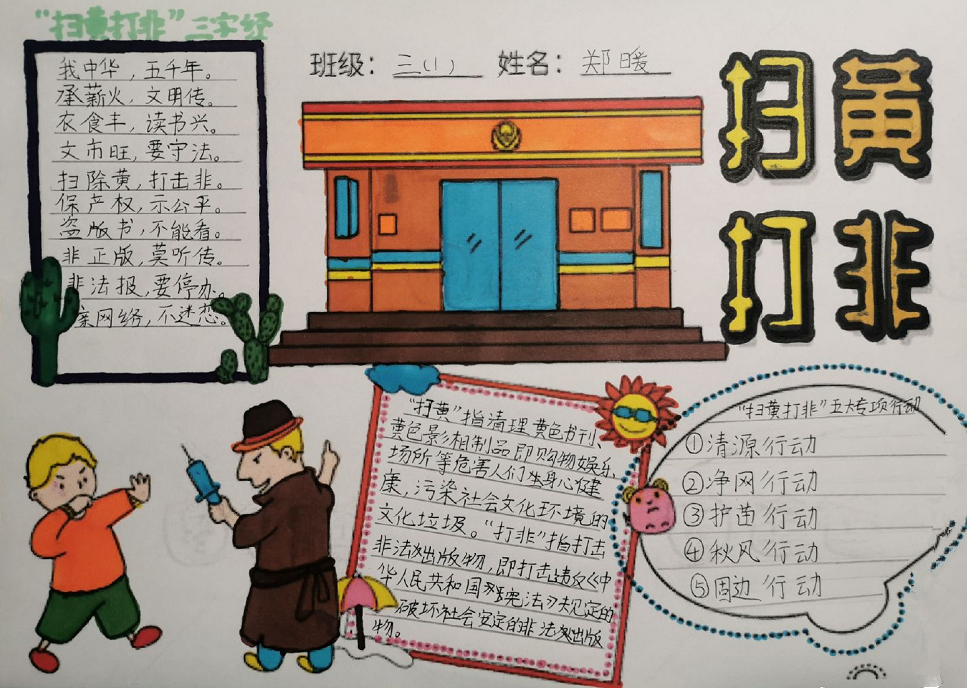 “扫黄打非”三字经
班级：三(1) 姓名：郑暖
扫黄
打非
我中华，五千年。
承薪火，文明传。
衣食丰，读书兴。
文市旺，要守法。
扫除黄，打击非。
保产权，示公平。
盗版书，不能看。
非正版，莫听传。
非法报，要停办。
亲网络，不迷恋。
“扫黄”指清理黄色书刊、
黄色影相制品即购物娱乐
场所等危害人们生身心健
康，污染社会文化环境的
文化垃圾。“打非”指打击
非法出版物，即打击违反《中
华人民共和国宪法》规定的
破坏社会安定的非法出版
物。
“扫黄打非”五大专项行动
①清源行动
②净网行动
③护苗行动
④秋风行动
⑤固边行动